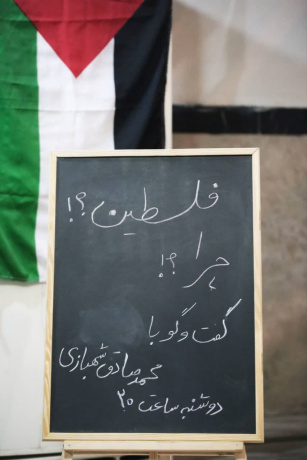 فلسطین ؟!
چرا ؟!
گفت و گو با
محمد صادق شهبازی
دوشنبه ساعت ۲۰